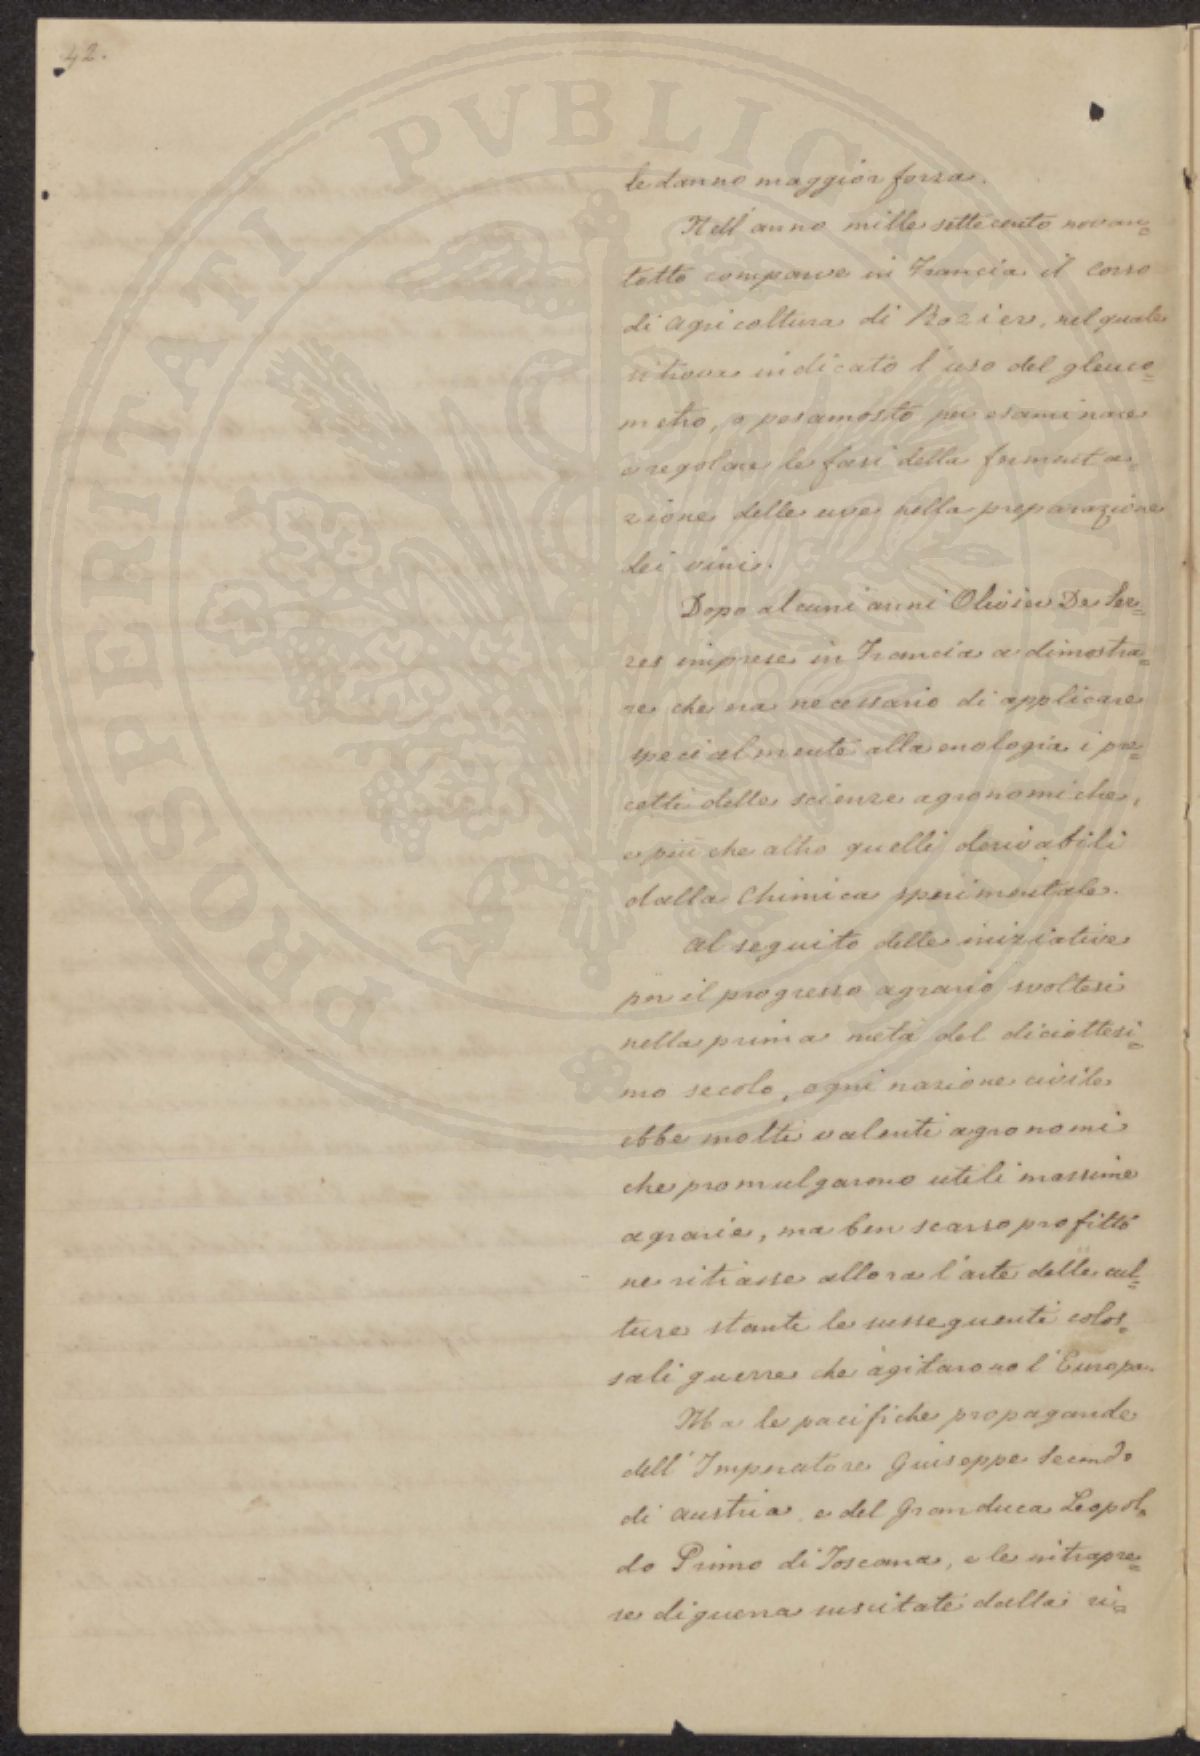 42.
PROSPERITATI PVBLICAE AVGENDAE
le danno maggior forza.
Nell'anno mille settecento novan=
totto comparve in Francia il corso
di agricoltura di Rozier, nel quale
si trova indicato l'uso del gleuco=
metro, o pesamosto per esaminare
e regolare le fasi della fermenta=
zione delle uve nella preparazione
dei vini.
Dopo alcuni anni Olivier De Ser=
res imprese in Francia a dimostra=
re che era necessario di applicare
specialmente alla enologia i pre=
cetti delle scienze agronomiche,
e più che altro quelli derivabili
dalla Chimica sperimentale.
Al seguito delle iniziative
per il progresso agrario svoltesi
nella prima metà del diciottesi=
mo secolo, ogni nazione civile
ebbe molti valenti agronomi
che promulgarono utili massime
agrarie, ma ben scarso profitto
ne ritrasse allora l'arte delle cul=
ture stante le susseguenti colos=
sali guerre che agitarono l'Europa.
Ma le pacifiche propagande
dell'Imperatore Giuseppe Secondo
di Austria e del Granduca Leopol=
do Primo di Toscana, e le intrapre=
se di guerra suscitate dalla ri=